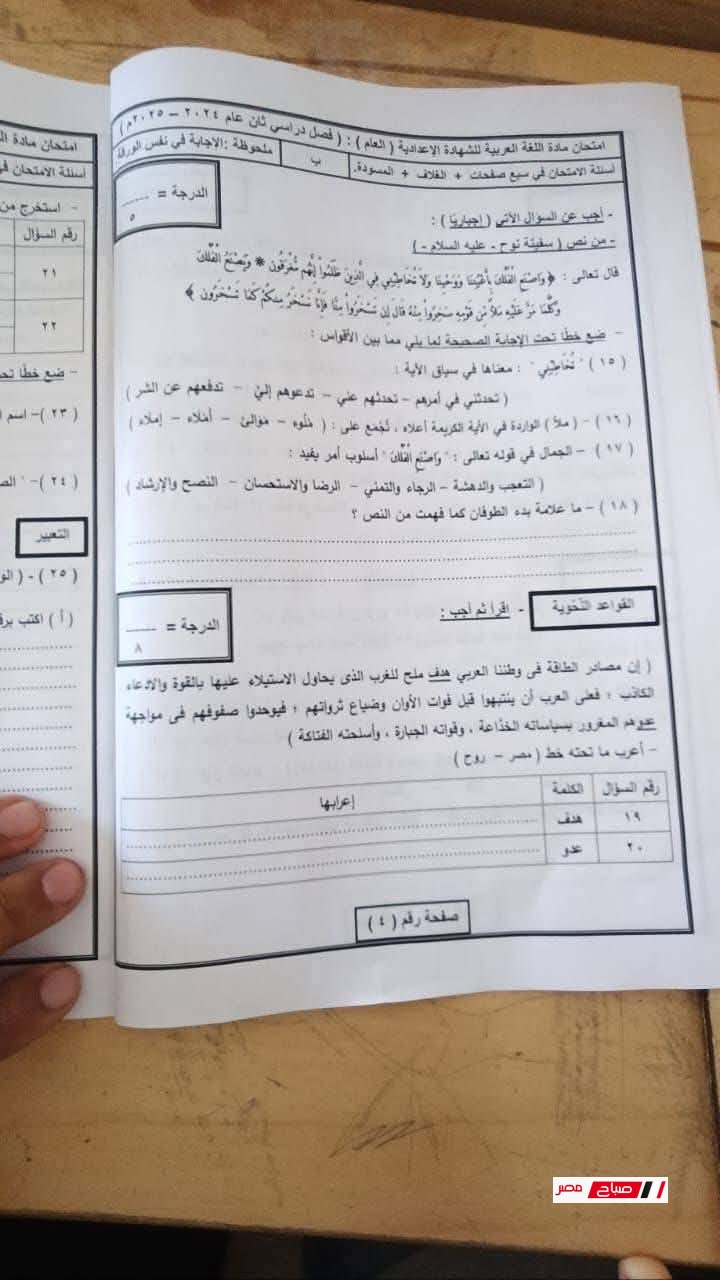 امتحان مادة اللغة العربية للشهادة الإعدادية ( العام ) : ( فصل دراسي ثان عام ٢٠٢٤ – ٢٠٢٥م )
أسئلة الامتحان في سبع صفحات + الغلاف + المسودة.
ب
ملحوظة :الإجابة في نفس الورقة
الدرجة = ــــــ
٥
- أجب عن السؤال الآتي ( إجباريًا ) :
- من نص ( سفينة نوح - عليه السلام - )
قال تعالى : ﴿ وَاصْنَعِ الْفُلْكَ بِأَعْيُنِنَا وَوَحْيِنَا وَلَا تُخَاطِبْنِي فِي الَّذِينَ ظَلَمُوا إِنَّهُم مُّغْرَقُونَ * وَيَصْنَعُ الْفُلْكَ
وَكُلَّمَا مَرَّ عَلَيْهِ مَلَأٌ مِّن قَوْمِهِ سَخِرُوا مِنْهُ قَالَ إِن تَسْخَرُوا مِنَّا فَإِنَّا نَسْخَرُ مِنكُمْ كَمَا تَسْخَرُونَ ﴾
- ضع خطًا تحت الإجابة الصحيحة لما يلي مما بين الأقواس :
( ١٥ ) " تُخَاطِبْنِي " : معناها في سياق الآية :
( تحدثني في أمرهم – تحدثهم عني – تدعوهم إليّ – تدفعهم عن الشر )
( ١٦ ) – ( ملأ ) الواردة في الآية الكريمة أعلاه ، تُجْمَع على : ( مُلُوء – مَوَالئ – أملاء – إملاء )
( ١٧ ) – الجمال في قوله تعالى : " وَاصْنَعِ الْفُلْكَ " أسلوب أمر يفيد :
( التعجب والدهشة – الرجاء والتمني – الرضا والاستحسان – النصح والإرشاد )
( ١٨ ) – ما علامة بدء الطوفان كما فهمت من النص ؟
القواعد النَّحْوية
- اقرأ ثم أجب :
الدرجة = ــــــ
٨
( إن مصادر الطاقة فى وطننا العربي هدف ملح للغرب الذى يحاول الاستيلاء عليها بالقوة والادعاء
الكاذب ؛ فعلى العرب أن ينتبهوا قبل فوات الأوان وضياع ثرواتهم ؛ فيوحدوا صفوفهم فى مواجهة
عدوهم المغرور بسياساته الخدَّاعة ، وقواته الجبارة ، وأسلحته الفتاكة )
- أعرب ما تحته خط ( مصر – روح )
رقم السؤال الكلمة إعرابها
١٩ هدف
٢٠ عدو
صفحة رقم ( ٤ )
امتحان مادة
أسئلة الامتحان
- استخرج من
رقم السؤال
٢١
٢٢
- ضع خطًا
( ٢٣ )– اسم
( ٢٤ )–
التعبير
( ٢٥ ) –
( أ ) اكتب
صباح مصر